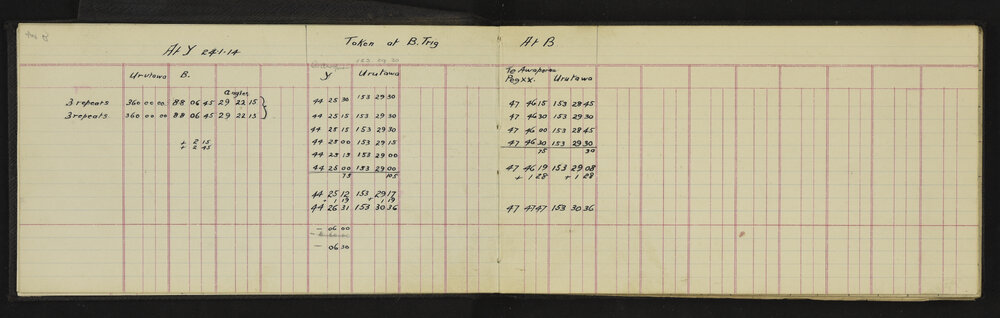 At Y 24.1.14
Urutawa B.
Angles
3 repeats 360 00 00 88 06 45 29 22 15
3 repeats 360 00 00 88 06 45 29 22 15
+ 2 15
+ 2 45
Taken at B. Trig
153 29 30
Y Urutawa
44 25 30 153 29 30
44 25 15 153 29 30
44 25 15 153 29 30
44 25 00 153 29 15
44 25 15 153 29 00
44 25 00 153 29 00
75 105
44 25 12 153 29 17
+ 1 19 + 1 19
44 26 31 153 30 36
— 06 00
— 06 30
At B
To Awaporoa
Peg XX. Urutawa
47 46 15 153 28 45
47 46 30 153 29 30
47 46 00 153 28 45
47 46 30 153 29 30
75 30
47 46 19 153 29 08
+ 1 28 + 1 28
47 47 47 153 30 36